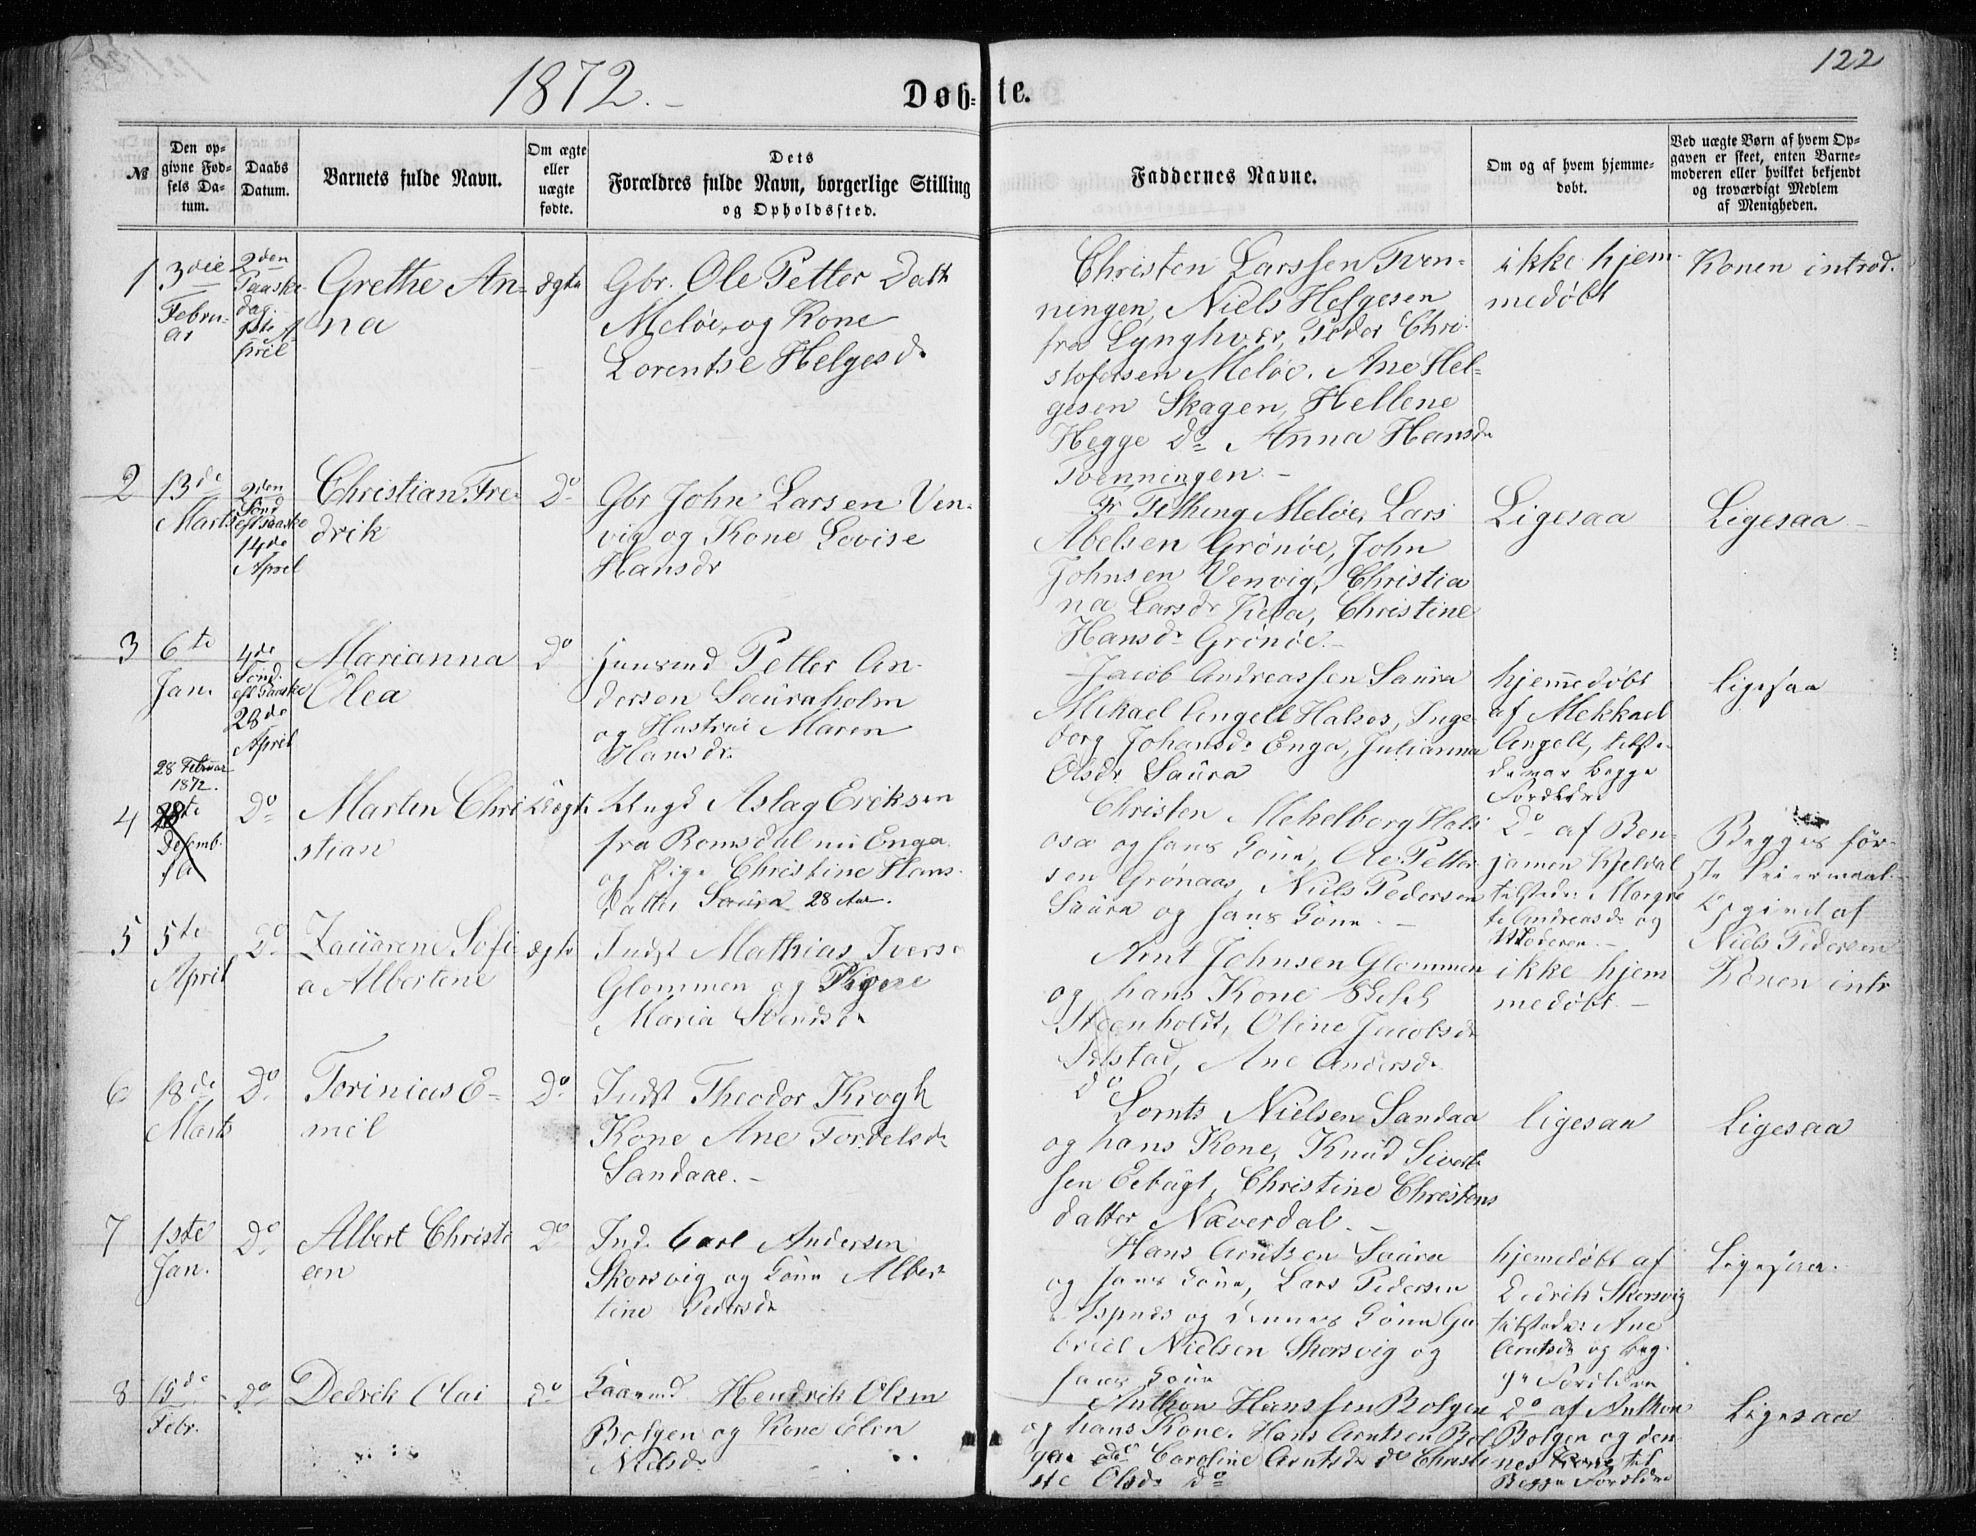 122
1872.
Døb-te.
№
Den op-
givne Fød-
sels Da-
tum.
Daabs
Datum.
Barnets fulde Navn.
Om ægte
eller
uægte
fødte.
Dets
Forældres fulde Navn, borgerlige Stilling
og Opholdssted.
Faddernes Navne.
Om og af hvem hjemme-
døbt.
Ved uægte Børn af hvem Op-
gaven er skeet, enten Barne-
moderen eller hvilket bekjendt
og troværdigt Medlem
af Menigheden.
1
3die
Febru-
ar
2den
Paaske
dag
1ste A-
pril
Grethe An-
na
ægte
Gbr. Ole Petter Dall
Meløe, og Kone
Lorentse Helgesd.
Christen Larssen Tven-
ningen, Niels Helgesen
fra Lynghver, Peder Chri-
stofersen Meløe. Ane Hel-
gesen Skagen, Hellene
Hegge do Anna Hansdr
Tvenningen.-
ikke hjem-
medøbt
Konen introd.
2
13de
Marts
2den
Sønd
eft Paaske
14de
April
Christian Fre-
drik
Do
Gbr John Larsen Ven-
vig og Kone Lovise
Hansdr
Fr Meløe, Lars
Abelsen Grønøe, John
Johnsen Venvig, Christia
na Larsdr Christine
Hansdr Grønøe.-
Ligesaa
Ligesaa
3
6te
Jan.
4de
Sønd.
eft Paaske
28de
April
Marianna
Olea
Do
Huusmd Petter An-
dersen Sauraholm
og Hustrue Maren
Hansdr.
Jacob Andreassen Saura
Mekael Angell Halsos, Inge-
borg Johansdr Enga, Julianna
Olsdr Saura
hjemmedøbt
af Mekkael
Angell, tilste-
de var begge
Forældre
ligesaa
4
28 Februar
1872.
28te
Desemb.
Do
Marten Chri
stian
Uægte
Ungk Aslag Eriksen
fra Romsdal nu Enga
og Pige Christine Hans-
datter Saura 28 Aar.
Christen Mehelborg Hals
osa og hans Kone, Ole Petter
sen Grønaas, Niels Pedersen
Saura og hans Kone.-
Do af Ben-
jamen Kjeldal
tilstede: Margre
te Andreasdr og
Moderen.-
Begges før-
ste leiermaal.
Opgivet af
Niels Pedersen
5
5te
April
Do
Laurene Sofi
a Albertine
ægte
Indst Mathias Iverse
Glommen og Kone
Maria Svendsdr
Arnt Johnsen Glommen
og hans Kone
Steenholdt, Oline Jacobsdr
Ane Andersdr
do
ikke hjem
medøbt.-
Konen intr
6
18de
Marts
Do
Torinius E-
mil
Do
Indst Theodor Krogh
Kone Ane Tordelsdr
Sandaae.-
Lornts Nielsen Sandaa
og hans Kone, Knud Sivert
sen Christine Christens
datter Næverdal.-
ligesaa
Ligesaa
7
1ste
Jan.
Do
Albert Christi
an
Do
Ind. Carl Andersen
Skorsvig og Kone Alber
tine Pedersdr
Hans Arntsen Saura
og hans Kone, Lars Pedersen
Espnes og dennes Kone Ga
briel Nielsen Skorsvig og
hans Kone
hjemedøbt af
Dedrik Skorsvig
tilstede: Ane
Arntsdr og beg-
ge Forældre
Ligesaa.
8
15de
Febr.
Do
Dedrik Olai
Do
Gaarmd Hendrik Olsen
Bolgen og Kone Elen
Nielsdr
Anthon Hanssen Bolgen
og hans Kone. Hans Arntsen Bol
gen do Caroline Arntsdr do Christi
ne Olsdr Do
Do af Anthon
Bolgen og den-
nes Kone til
Begge Forældre
Ligesaa